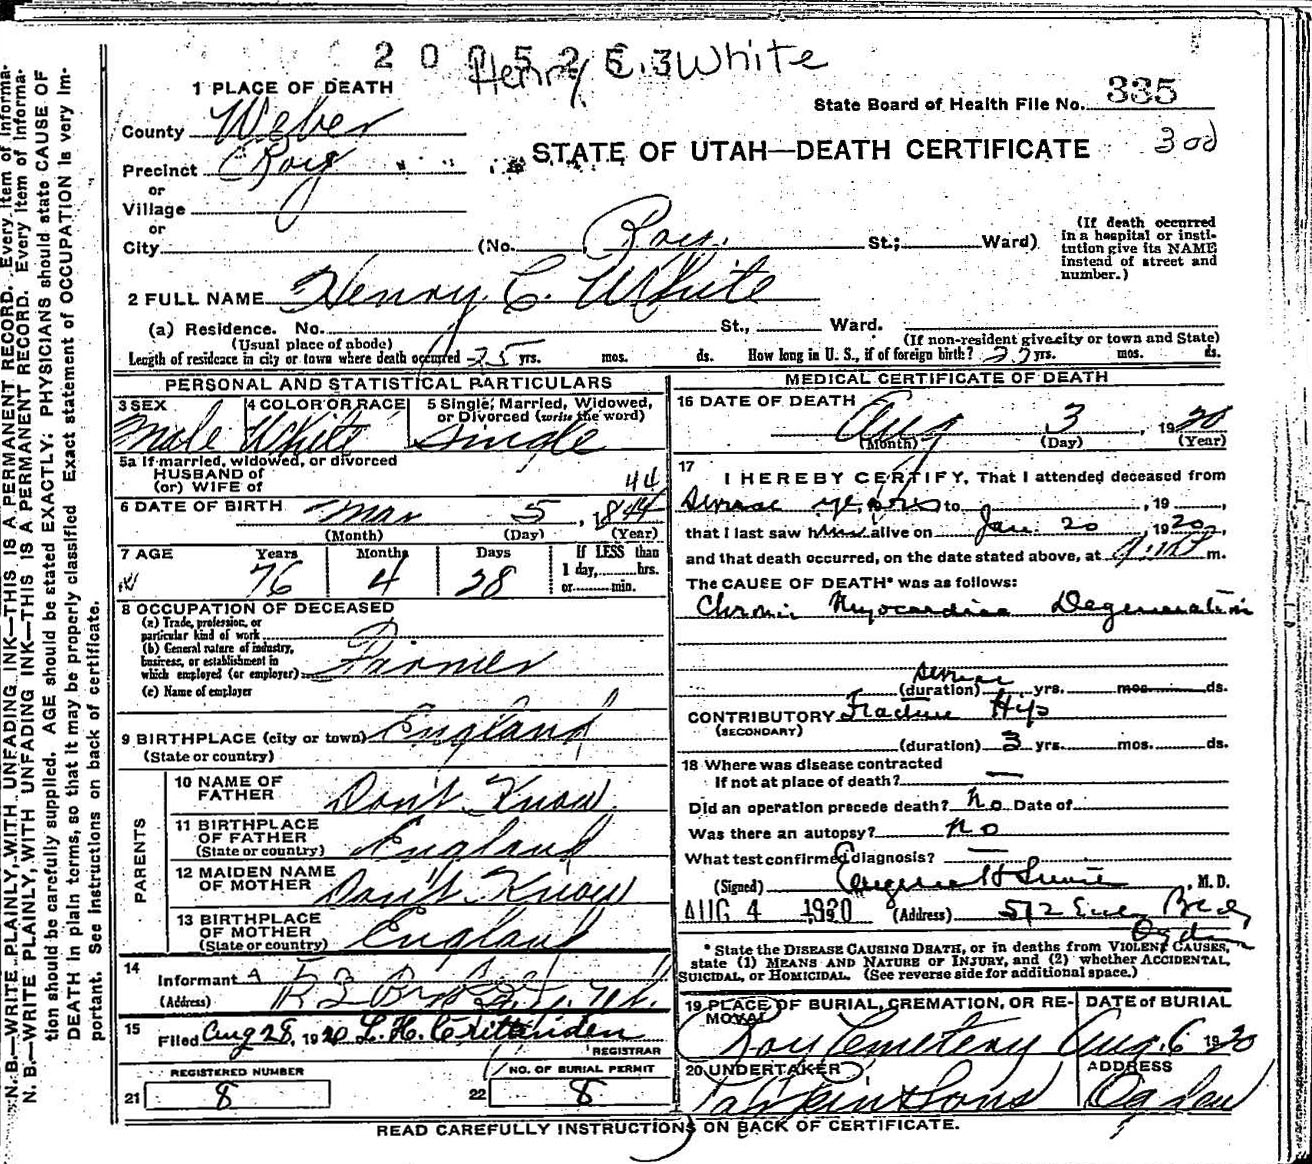 Henry C. White
1 PLACE OF DEATH
State Board of Health File No. 335
County Weber
STATE OF UTAH—DEATH CERTIFICATE
Precinct Roy
or
Village
or
City (No. Roy. St.; Ward)
(If death occurred in a hospital or insti-
tution give its NAME
instead of street and
number.)
2 FULL NAME Henry C. White
(a) Residence. No. St., Ward.
(Usual place of abode) (If non-resident give city or town and State)
Length of residence in city or town where death occurred 35 yrs. mos. ds. How long in U. S., if of foreign birth? yrs. mos. ds.
PERSONAL AND STATISTICAL PARTICULARS
3 SEX 4 COLOR OR RACE 5 Single, Married, Widowed,
or Divorced (write the word)
Male White Single
5a If married, widowed, or divorced
HUSBAND of
(or) WIFE of
44
6 DATE OF BIRTH Mar 5, 1844
(Month) (Day) (Year)
7 AGE Years Months Days If LESS than
1 day, hrs.
or min.
76 4 28
8 OCCUPATION OF DECEASED
(a) Trade, profession, or
particular kind of work
(b) General nature of industry,
business, or establishment in
which employed (or employer) Farmer
(c) Name of employer
9 BIRTHPLACE (city or town) England
(State or country)
PARENTS
10 NAME OF
FATHER Don't Know
11 BIRTHPLACE
OF FATHER
(State or country) England
12 MAIDEN NAME
OF MOTHER Don't Know
13 BIRTHPLACE
OF MOTHER
(State or country) England
14
Informant
(Address)
15
Filed Aug 28, 1920 L. H. Crittenden
REGISTRAR
REGISTERED NUMBER NO. OF BURIAL PERMIT
21 8 22 8
MEDICAL CERTIFICATE OF DEATH
16 DATE OF DEATH
Aug 3, 1920
(Month) (Day) (Year)
17
I HEREBY CERTIFY, That I attended deceased from
several years to , 19
that I last saw him alive on Jan. 20 1920,
and that death occurred, on the date stated above, at m.
The CAUSE OF DEATH* was as follows:
Chronic Myocardial Degeneration
several
(duration) yrs. mos. ds.
CONTRIBUTORY Fracture Hip
(SECONDARY)
(duration) 3 yrs. mos. ds.
18 Where was disease contracted
If not at place of death? —
Did an operation precede death? no Date of
Was there an autopsy? no
What test confirmed diagnosis? —
(Signed) Eugene H Smith, M. D.
AUG 4 1920 (Address) Ogden
* State the DISEASE CAUSING DEATH, or in deaths from VIOLENT CAUSES,
state (1) MEANS AND NATURE OF INJURY, and (2) whether ACCIDENTAL,
SUICIDAL, OR HOMICIDAL. (See reverse side for additional space.)
19 PLACE OF BURIAL, CREMATION, OR RE-
MOVAL DATE of BURIAL
Roy Cemetery Aug. 6 1920
20 UNDERTAKER ADDRESS
Larkin & Sons Ogden
READ CAREFULLY INSTRUCTIONS ON BACK OF CERTIFICATE.
N. B.—WRITE PLAINLY, WITH UNFADING INK—THIS IS A PERMANENT RECORD. Every item of informa-
N. B.—WRITE PLAINLY, WITH UNFADING INK—THIS IS A PERMANENT RECORD. Every item of informa-
tion should be carefully supplied. AGE should be stated EXACTLY. PHYSICIANS should state CAUSE OF
DEATH in plain terms, so that it may be properly classified. Exact statement of OCCUPATION is very im-
portant. See instructions on back of certificate.